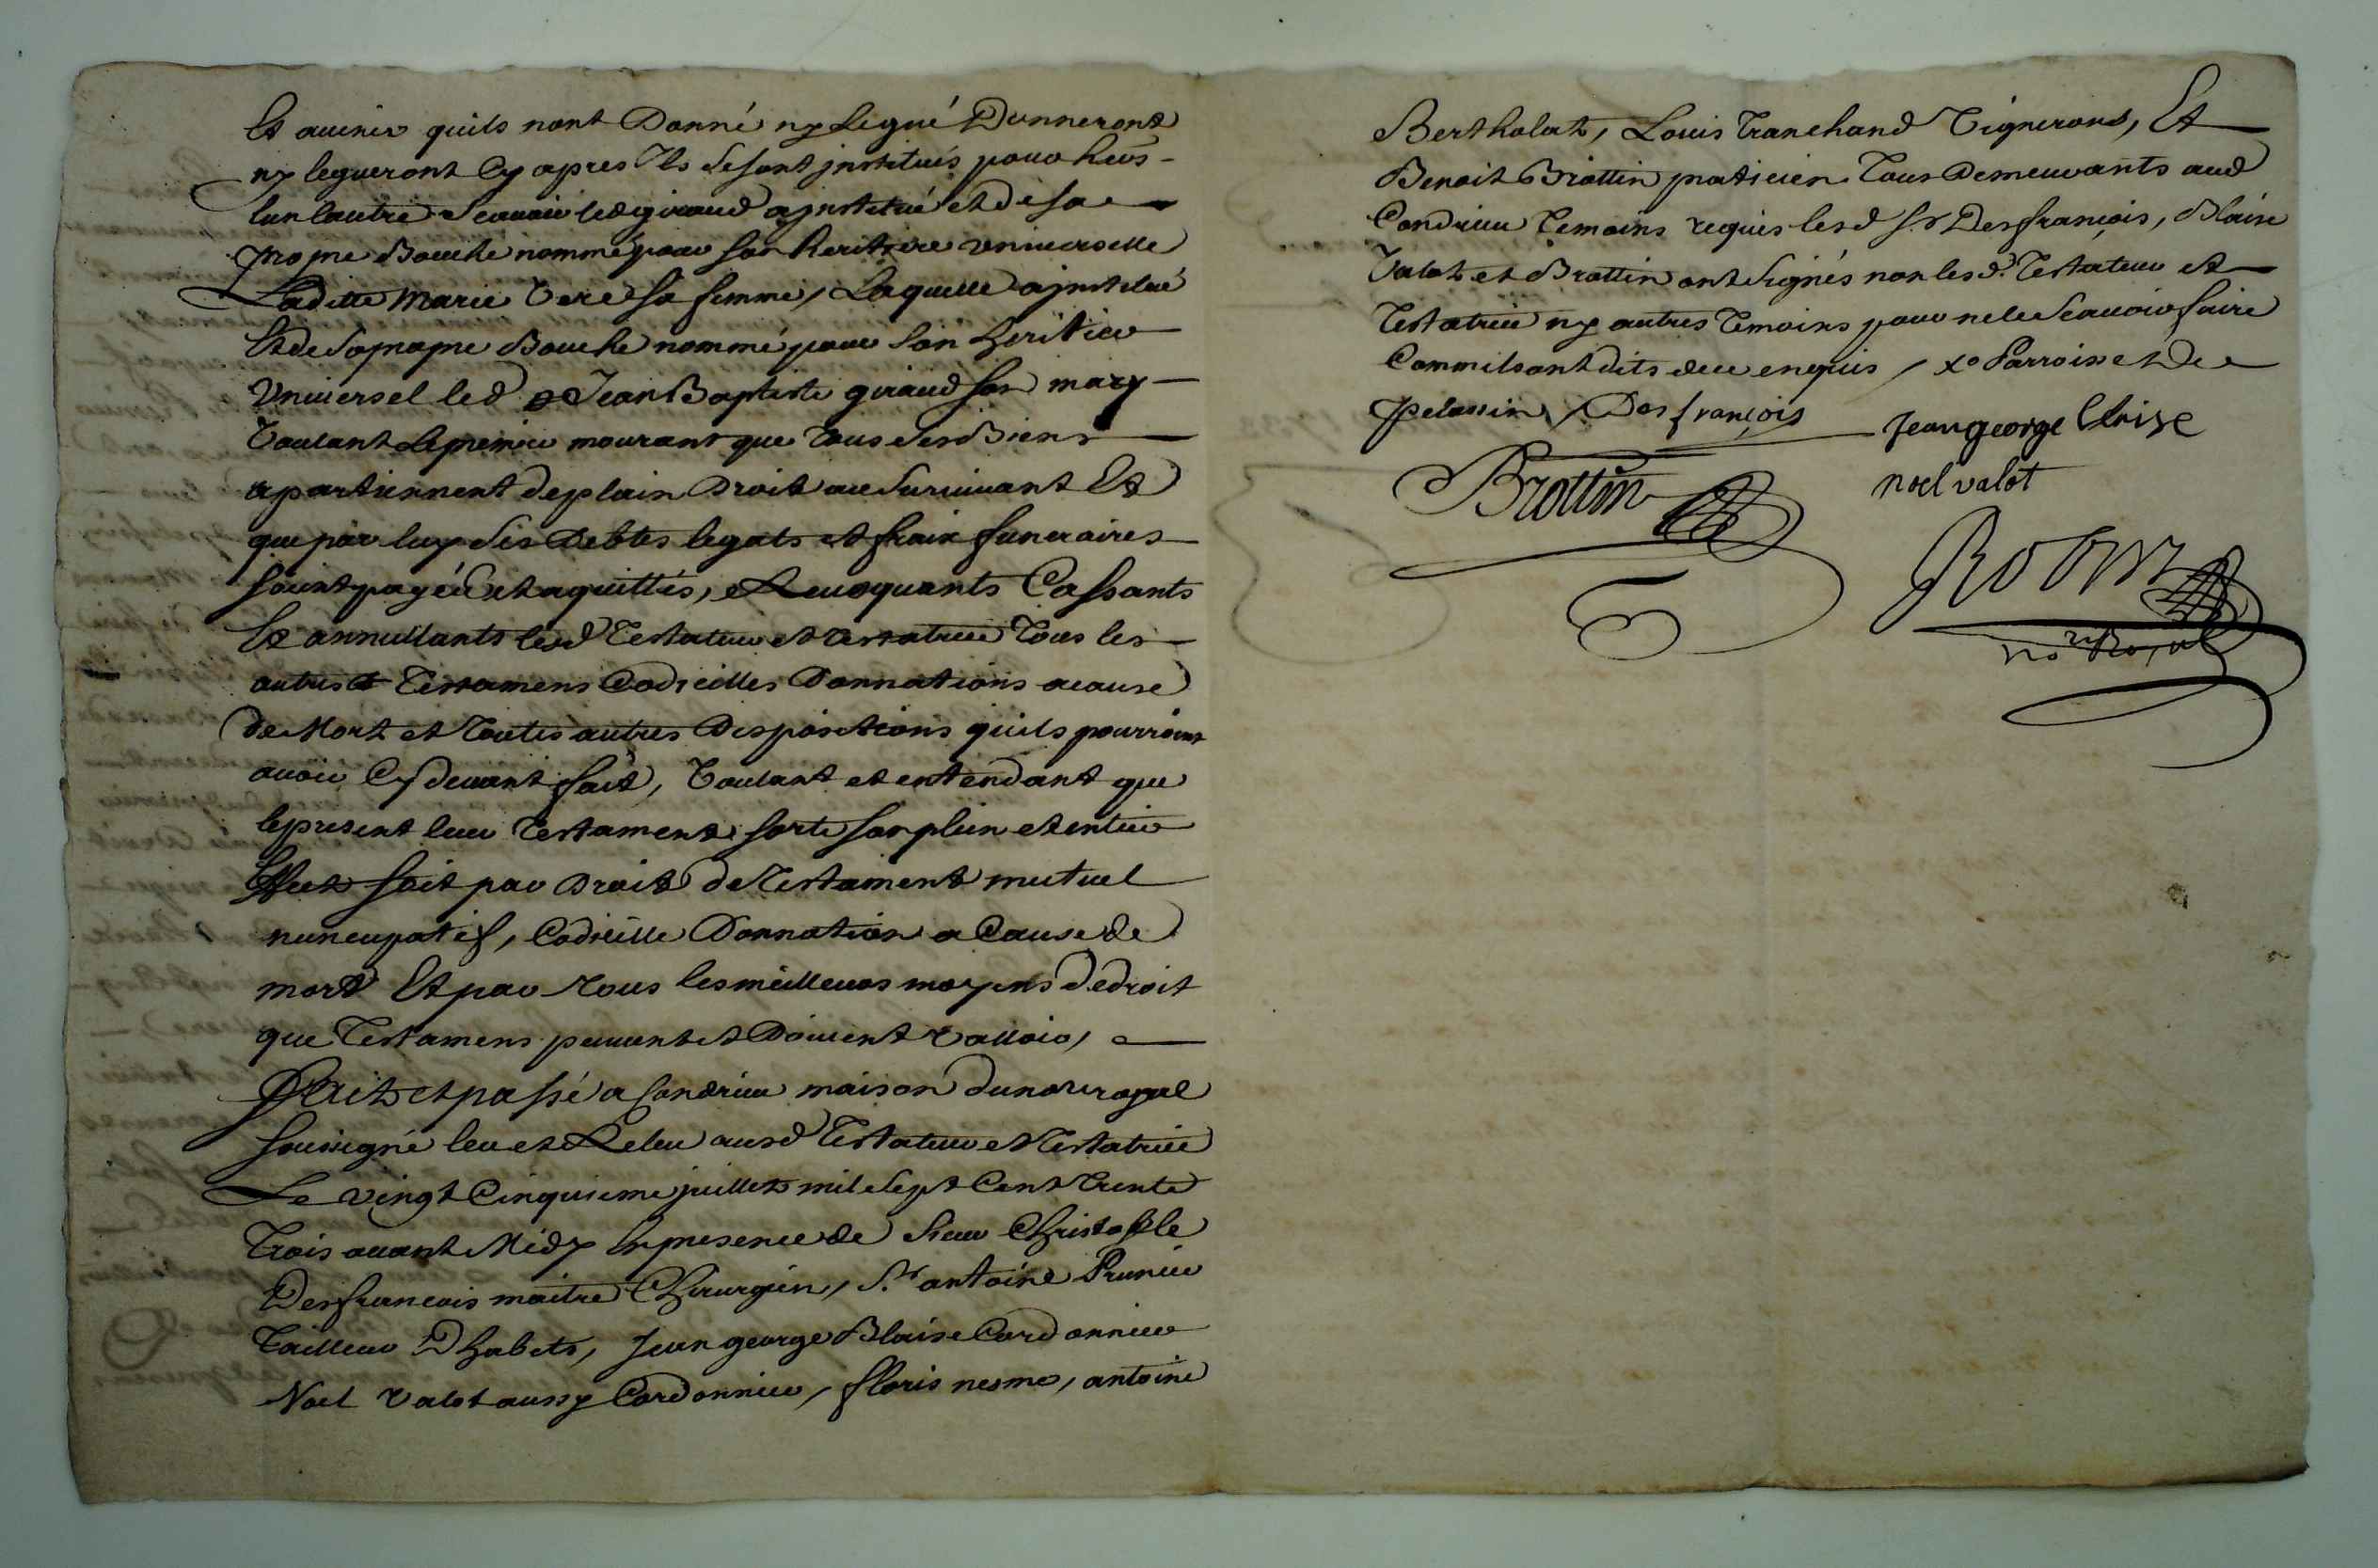 Et avenir quils nont Donné ny Legué Donneront
ny legueront Cy apres Ils se sont jnstitués pour heős
lun lautre scavoir led giraud a jnstitué et de sa
propre Bouche nommé pour son heritiere universelle
Laditte Marie Vere sa femme, Laquelle a jnstitué
Et de sa propre Bouche nommé pour son heritier
Universel led Jean Baptiste giraud son mary
Voulant le premier mourant que tous ses Biens
apartiennent de plain Droit au survivant Et
que par luy ses Debtes legats et fraix funeraires
soient payés et aquittés, Revoquants Cassants
Et annullants lesd Testateur et testatrice Tous les
autres Testamens Codicilles Donnations acause
de Mort et toutes autres Dispositions quils pourroient
avoir Cy devant fait, Voulant et entendant que
le present leur Testament sorte son plein et entier
Effect soit par Droit de Testament mutuel
nuncupatif, Codicille Donnation a Cause de
mort Et par tous les meilleurs moyens de droit
que Testamens peuvent et Doivent valloir,
Fait et passé a Condrieu maison du noře royal
soussigné leu et Releu ausd Testateur et Testatrice
Le vingt Cinquieme juillet mil sept Cent Trente
Trois avant Midy En presence de sieur Christofle
Desfrancois maitre Chirurgien, Sr antoine Prunier
Tailleur Dhabits, Jean george Blaise Cordonnier
Noel Valot aussy Cordonnier, floris nesme, antoine
Bertholat, Louis Tranchand Vignerons, Et
Benoit Brottin praticien Tous Demeurants aud
Condrieu Temoins requis lesd Sr Desfrançois, Blaise
Valot et Brottin ont signés non lesd. Testateur et
Testatrice ny autres Temoins pour ne le scavoir faire
Comm ils ont dits de ce enquis / xo Parroisse de
pelussin / Desfrançois
Jean george Blaise
Brottin
noel valot
Robin
noře Royal